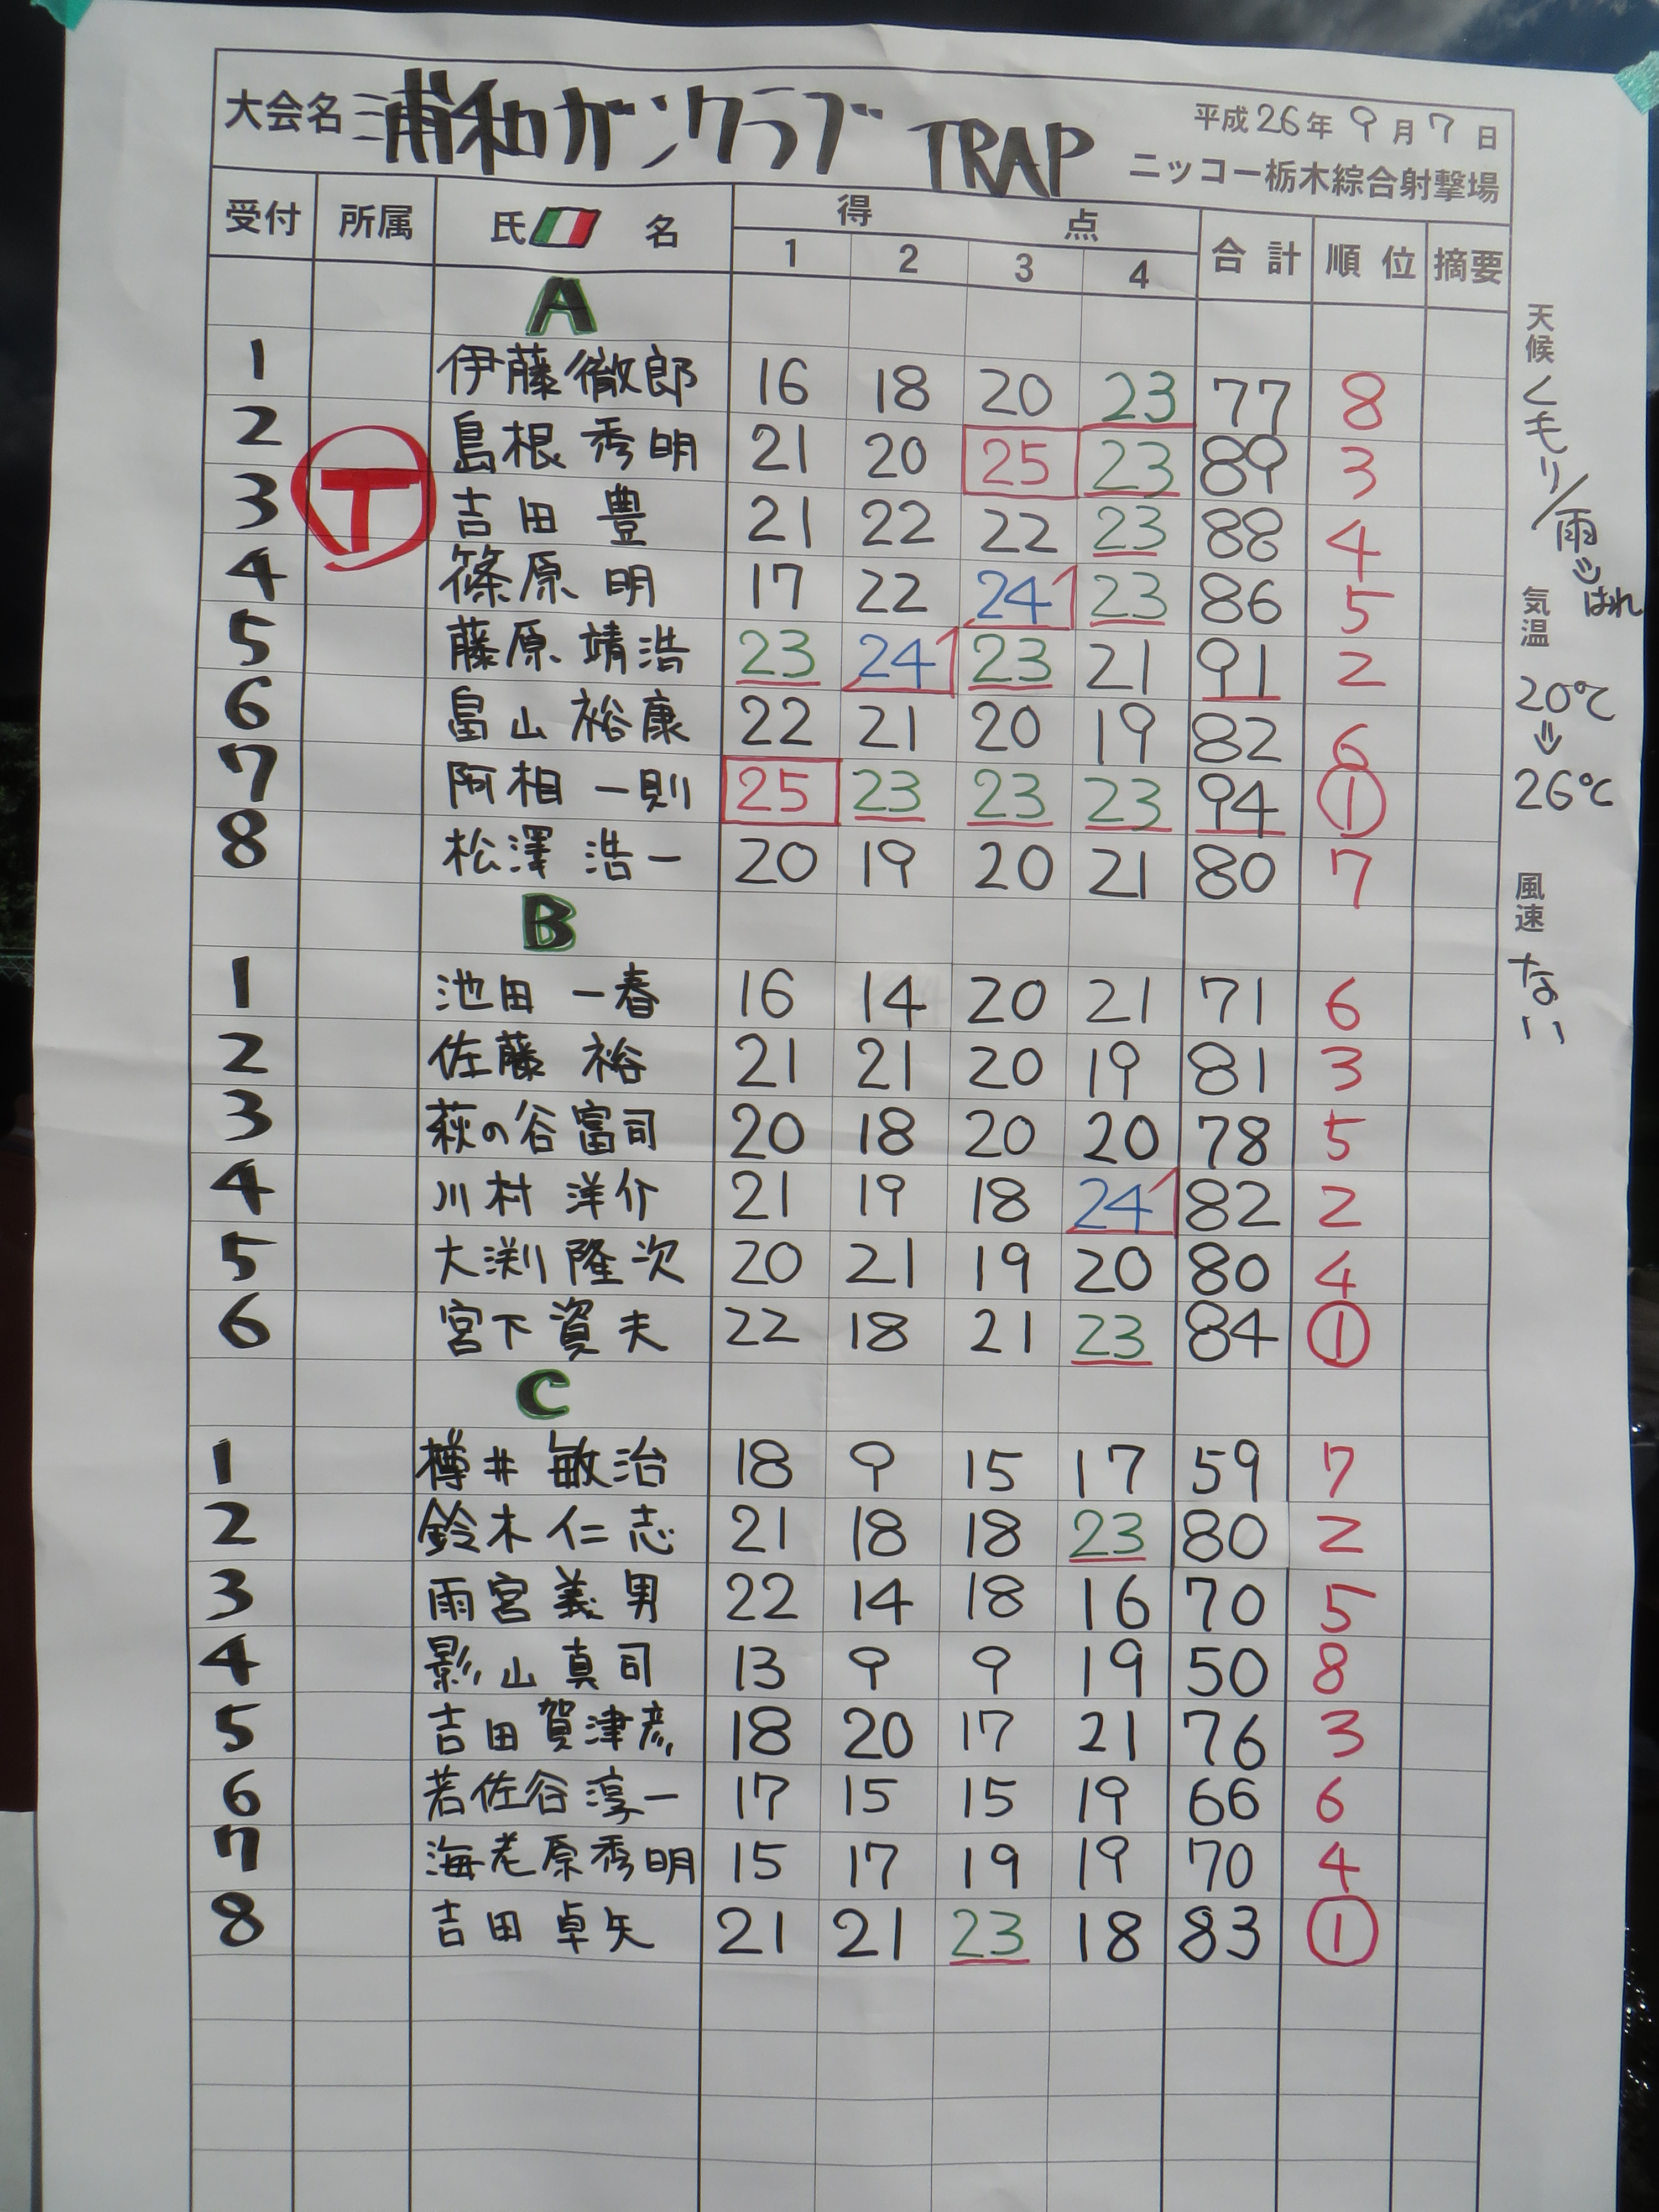 大会名 浦和ガンクラブ TRAP 平成26年9月7日
ニッコー栃木綜合射撃場
受付 所属 氏名 得点 合計 順位 摘要
1 2 3 4
A
1 伊藤徹郎 16 18 20 23 77 8
2 島根秀明 21 20 25 23 89 3
T
3 吉田豊 21 22 22 23 88 4
4 篠原明 17 22 24 23 86 5
5 藤原靖浩 23 24 23 21 91 2
6 畠山裕康 22 21 20 19 82 6
7 阿相一則 25 23 23 23 94 1
8 松澤浩一 20 19 20 21 80 7
B
1 池田一春 16 14 20 21 71 6
2 佐藤裕 21 21 20 19 81 3
3 萩の谷富司 20 18 20 20 78 5
4 川村洋介 21 19 18 24 82 2
5 大渕隆次 20 21 19 20 80 4
6 宮下資夫 22 18 21 23 84 1
C
1 樽井敏治 18 9 15 17 59 7
2 鈴木仁志 21 18 18 23 80 2
3 雨宮義男 22 14 18 16 70 5
4 影山真司 13 9 9 19 50 8
5 吉田賀津彦 18 20 17 21 76 3
6 若佐谷淳一 17 15 15 19 66 6
7 海老原秀明 15 17 19 19 70 4
8 吉田卓矢 21 21 23 18 83 1
天候 くもり/雨⇒はれ
気温 20℃⇒26℃
風速 ない